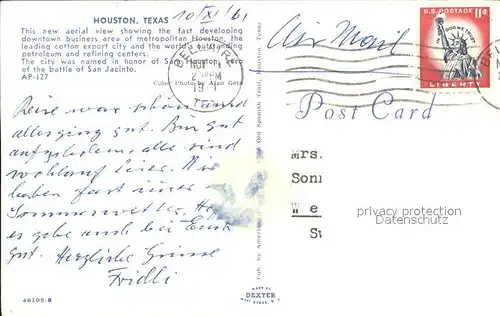 HOUSTON, TEXAS 10/XI/61
This new aerial view showing the fast developing
downtown business area of metropolitan Houston, the
leading cotton export city and the world's outstanding
petroleum and refining centers.
The city was named in honor of Sam Houston, hero
of the battle of San Jacinto.
AP-127
Color Photo by Alan Getz
Reise war schön und
alles ging gut. Bin gut
aufgehoben, alle sind
wohlauf hier. Wir
haben fast immer
Sommerwetter.
es gehe auch bei Euch
gut. Herzliche Grüsse
Fridli
46105-B
Pub. by American
Old Spanish Trail, Houston, Texas
MADE BY
DEXTER
WEST NYACK, N.Y.
Air Mail
NOV
PM
19
U.S. POSTAGE 11¢
IN GOD WE TRUST
LIBERTY
Post Card
Mrs.
Sonn
We
St
privacy protection
Datenschutz